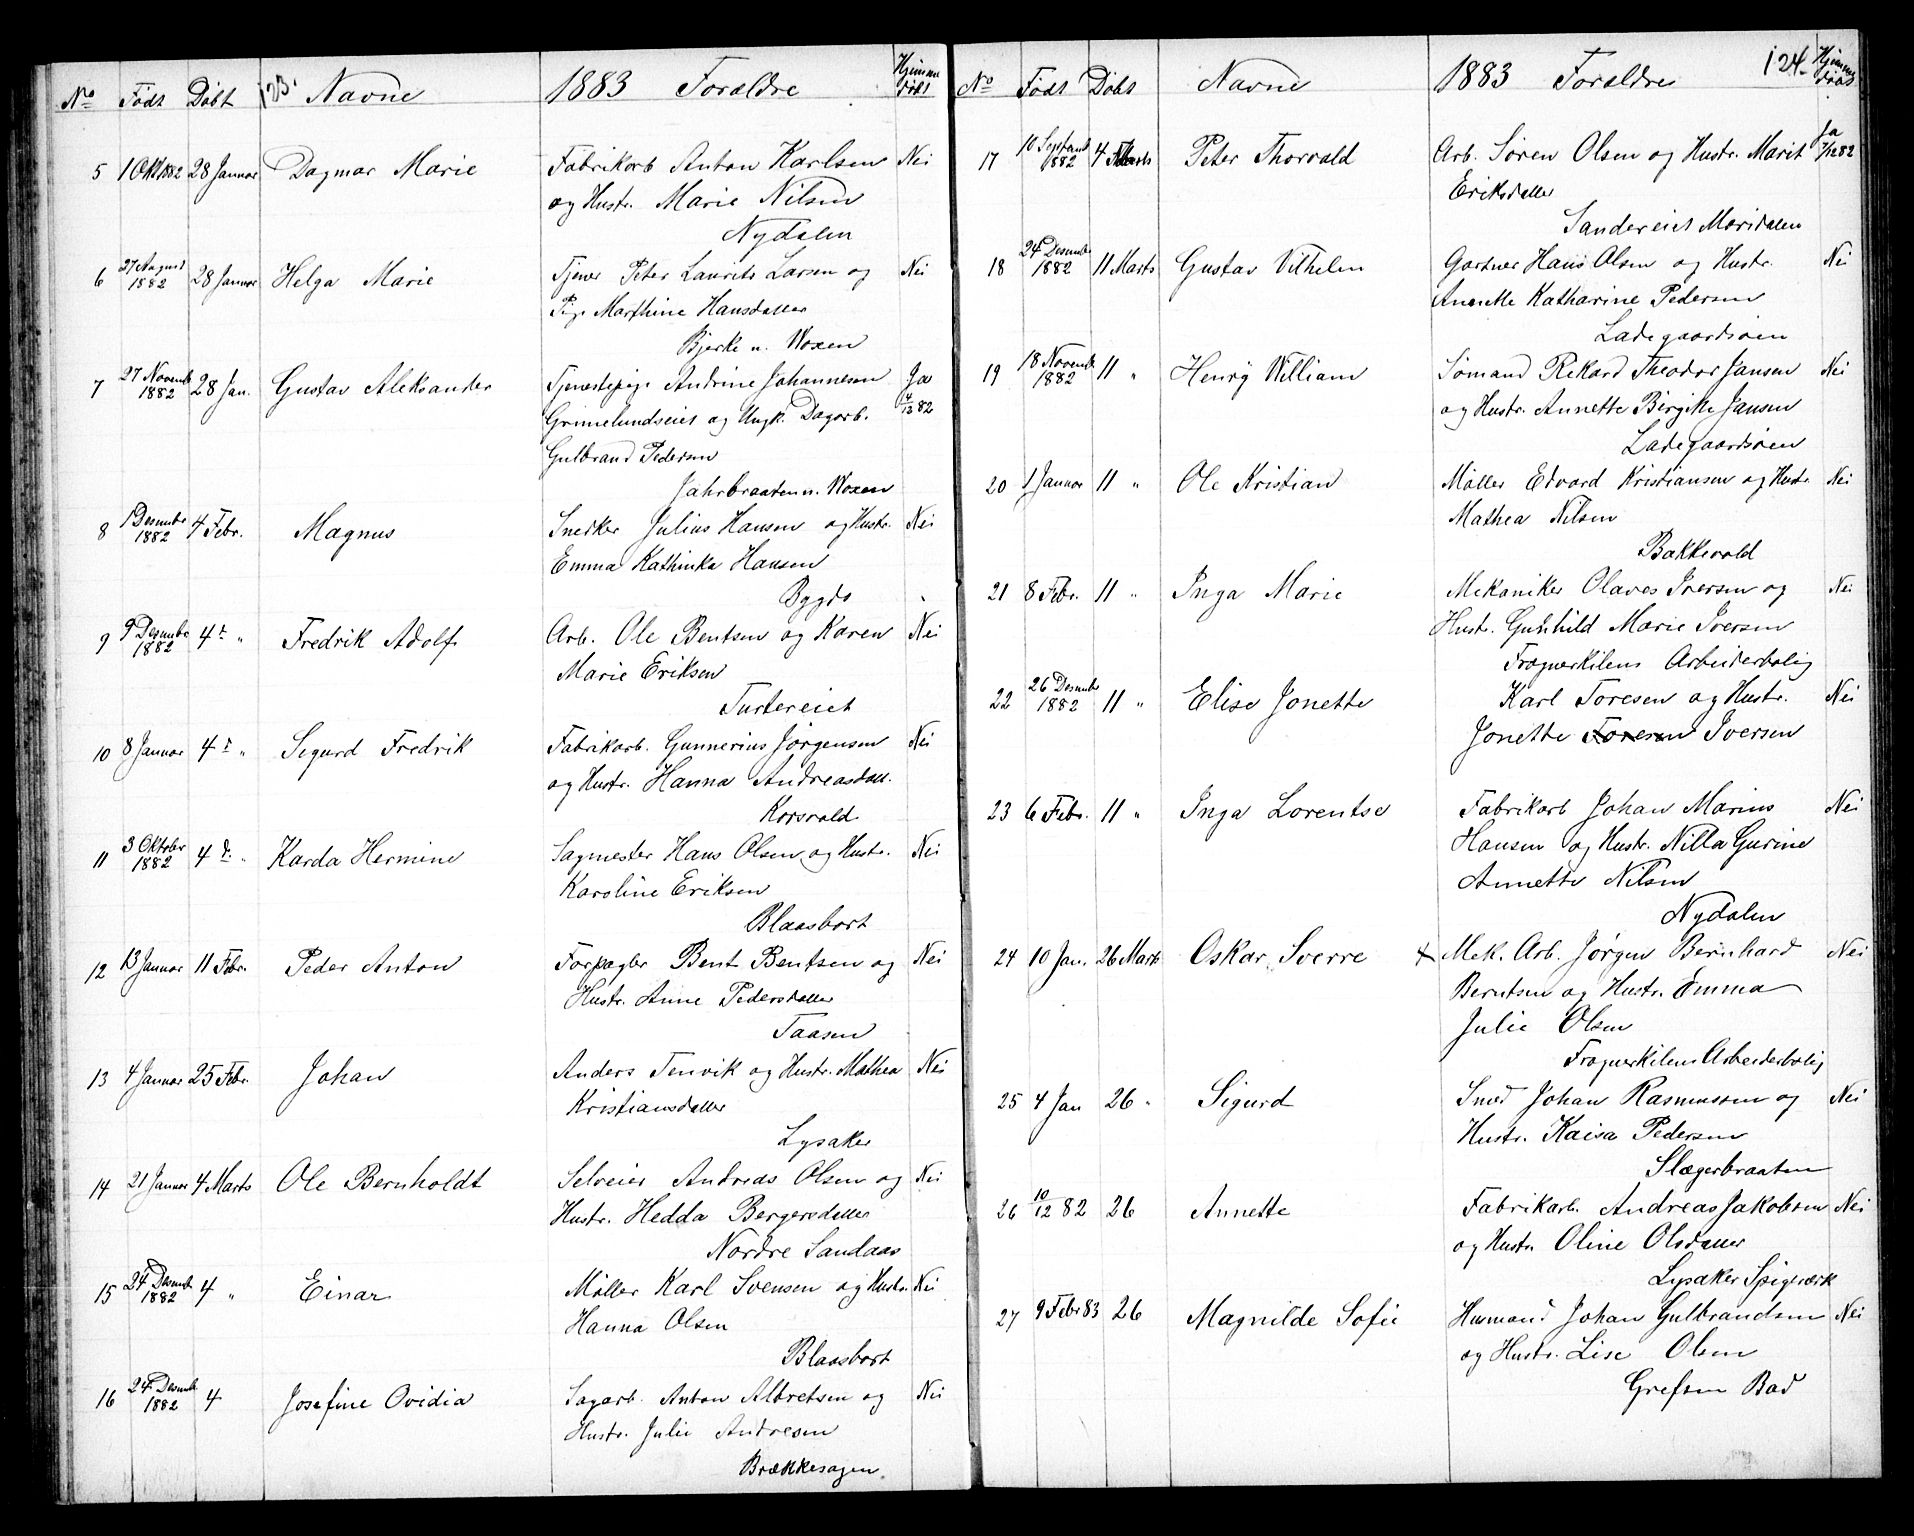 No Født Døbt 123. Navne 1883 Forældre Hjemmedøbt
5 1 Okt 1882 28 Januar Dagmar Marie Fabrikarb Anton Karlsen Nei
og Hustr. Marie Nilsen
Nydalen
6 27 August 1882 28 Januar Helga Marie Tjener Peter Laurits Larsen og Nei
Pige Marthine Hansdatter
Bjerke u. Voxen
7 27 Novemb 1882 28 Jan. Gustav Aleksander Tjenestepige Andrine Johannesen Ja 4/12 82
Grimelundseiet og Ungk. Dagarb.
Gulbrand Pedersen
Jahrbraaten u. Voxen
8 1 Desember 1882 4 Febr. Magnus Snedker Julius Hansen og Hustr. Nei
Emma Kathinka Hansen
Bygdø
9 9 Desember 1882 4 " Fredrik Adolf Arb. Ole Bentsen og Karen Nei
Marie Eriksen
Turtereiet
10 8 Januar 4 " Sigurd Fredrik Fabrikarb. Gunnerius Jørgensen Nei
og Hustr. Hanna Andreasdatt.
Korsvold
11 3 Oktober 1882 4 " Karda Hermine Sagmester Hans Olsen og Hustr. Nei
Karoline Eriksen
Blaasbort
12 13 Januar 11 Febr. Peder Anton Forpagter Bent Bentsen og Nei
Hustr. Anne Pedersdatter
Taasen
13 4 Januar 25 Febr. Johan Anders Tenvik og Hustr. Mathea Nei
Kristiansdatter
Lysaker
14 21 Januar 4 Marts Ole Bernholdt Selveier Andreas Olsen og Nei
Hustr. Hedda Bergersdatter
Nordre Sandaas
15 24 Desemb 1882 4 " Einar Møller Karl Svensen og Hustr. Nei
Hanna Olsen
Blaasbort
16 24 Desemb 1882 4 Josefine Ovidia Sagarb. Anton Albretsen og Nei
Hustr. Julie Andresen
Brækkesagen
No Født Døbt Navne 1883 Forældre 124. Hjemmedøbt
17 10 Septemb 1882 4 Marts Peter Thorvald Arb. Søren Olsen og Hustr. Marit Ja 7/12 82
Eriksdatter
Sandereiet Maridalen
18 24 Desember 1882 11 Marts Gustav Vilhelm Gartner Hans Olsen og Hustr. Nei
Annette Katharine Pedersen
Ladegaardsøen
19 18 Novemb 1882 11 " Henry William Sømand Rikard Theodor Jansen Nei
og Hustr. Annette Birgitte Jansen
Ladegaardsøen
20 1 Januar 11 " Ole Kristian Møller Edvard Kristiansen og Hustr Nei
Mathea Nilsen
Bakkevold
21 8 Febr. 11 " Inga Marie Mekaniker Olaves Iversen og Nei
Hustr. Gunhild Marie Iversen
Frognerkilens Arbeiderbolig
22 26 Desember 1882 11 " Elise Jonette Karl Toresen og Hustr. Nei
Jonette Toresen Iversen
23 6 Febr. 11 " Inga Lorentse Fabrikarb Johan Marius Nei
Hansen og Hustr. Nilla Gurine
Annette Nilsen
Nydalen
24 10 Jan. 26 Marts Oskar Sverre + Mek. Arb. Jørgen Bernhard Nei
Berntsen og Hustr. Emma
Julie Olsen
Frognerkilens Arbeiderbolig
25 4 Jan 26 " Sigurd Sned Johan Rasmussen og Nei
Hustr. Kaisa Pedersen
Slægerbraaten
26 10/12 82 26 Annette Fabrikarb. Andreas Jakobsen Nei
og Hustr. Oline Olsdatter
Lysaker Spigerværk
27 9 Febr 83 26 Magnilde Sofie Husmand Johan Gulbrandsen Nei
og Hustr. Lise Olsen
Grefsen Bad